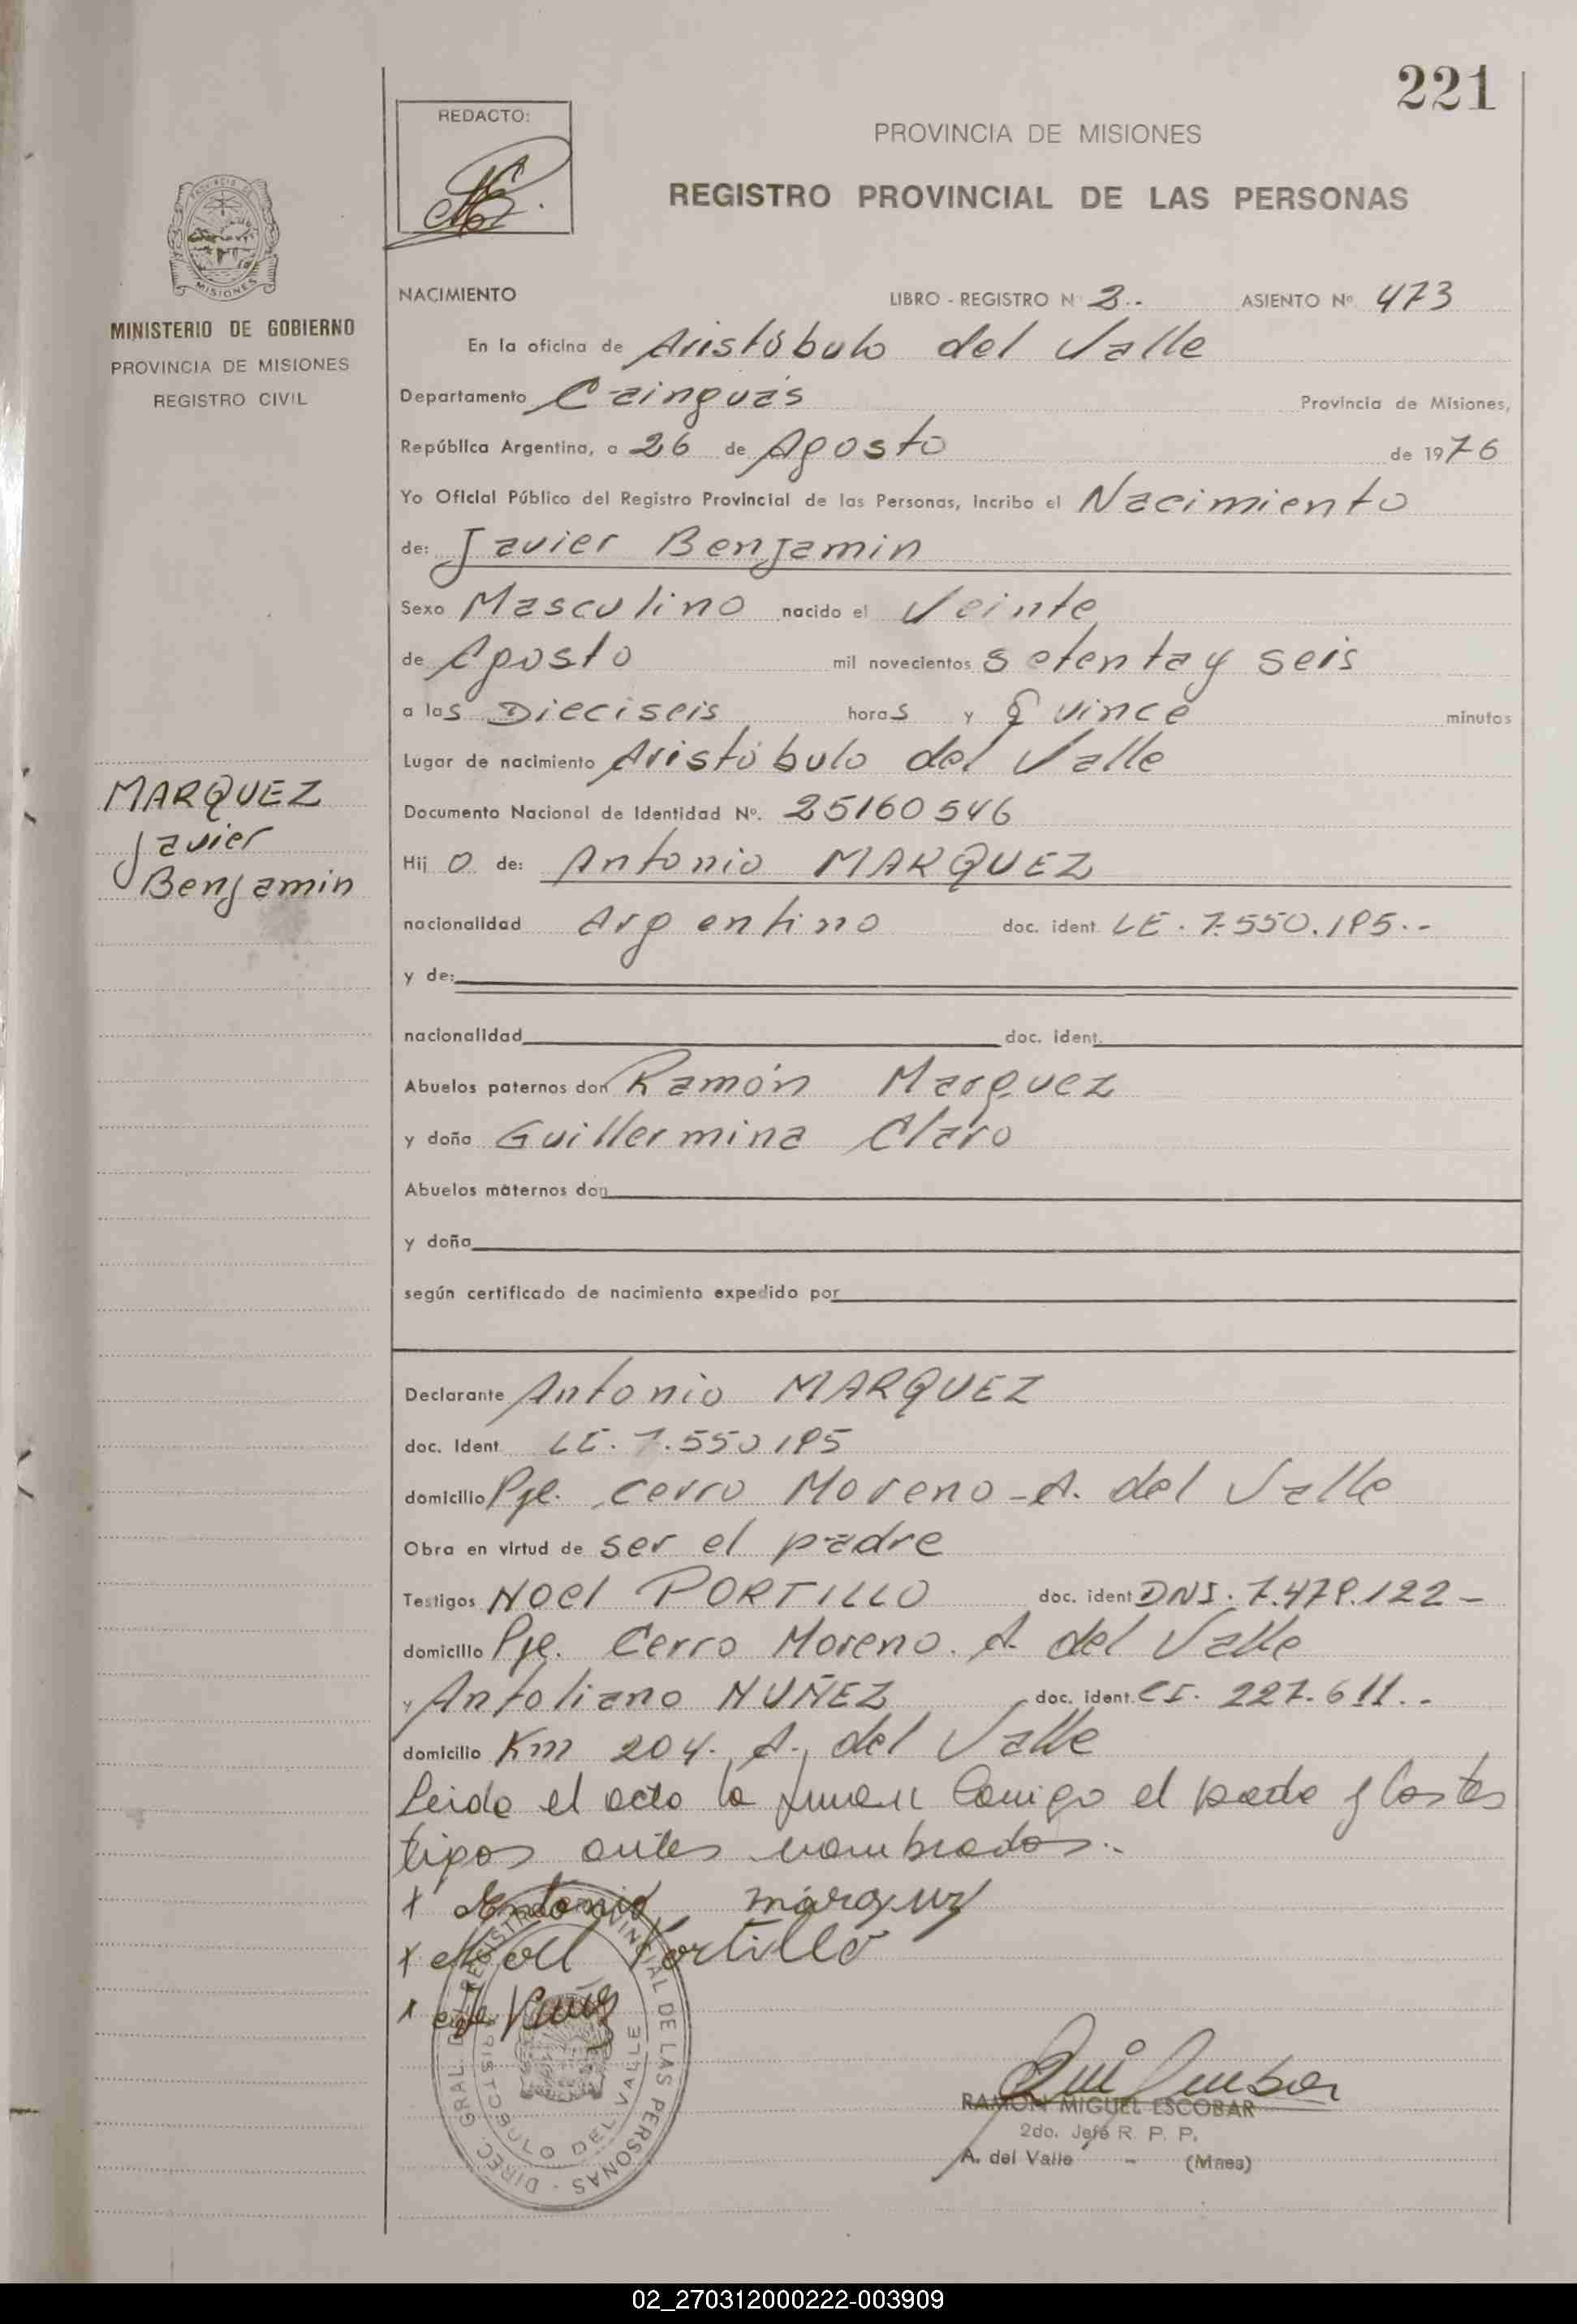 221
REDACTO:
PROVINCIA DE MISIONES
REGISTRO PROVINCIAL DE LAS PERSONAS
PROVINCIA DE
MISIONES
MINISTERIO DE GOBIERNO
PROVINCIA DE MISIONES
REGISTRO CIVIL
NACIMIENTO LIBRO - REGISTRO Nº 2.- ASIENTO Nº 473
En la oficina de Aristóbulo del Valle
Departamento Cainguás Provincia de Misiones,
República Argentina, a 26 de Agosto de 1976
Yo Oficial Público del Registro Provincial de las Personas, Incribo el Nacimiento
de: Javier Benjamin
Sexo Masculino nacido el Veinte
de Agosto mil novecientos setenta y seis
a las Dieciseis horas y Quince minutos
Lugar de nacimiento Aristóbulo del Valle
MARQUEZ
Javier
Benjamin
Documento Nacional de Identidad Nº. 25160546
Hijo de: Antonio MARQUEZ
nacionalidad Argentino doc. ident. LE. 7.550.195.-
y de:
nacionalidad doc. ident.
Abuelos paternos don Ramón Marquez
y doña Guillermina Claro
Abuelos maternos don
y doña
según certificado de nacimiento expedido por
Declarante Antonio MARQUEZ
doc. Ident LE. 7.550195
domicilio Pje. Cerro Moreno - A. del Valle
Obra en virtud de ser el padre
Testigos Noel PORTILLO doc. ident DNI. 7.479.122 -
domicilio Pje. Cerro Moreno. A. del Valle
y Antoliano NUÑEZ doc. ident. CI. 227.611.-
domicilio Km 204. A. del Valle
Leida el acta la firman conmigo el padre y los tes
tigos antes nombrados.-
x Antonio marquez
x Noel Portillo
x
DIREC. GRAL. DEL REGISTRO PROVINCIAL DE LAS PERSONAS
ARISTOBULO DEL VALLE
RAMON MIGUEL ESCOBAR
2do. Jefe R. P. P.
A. del Valle - (Mnes)
02_270312000222-003909